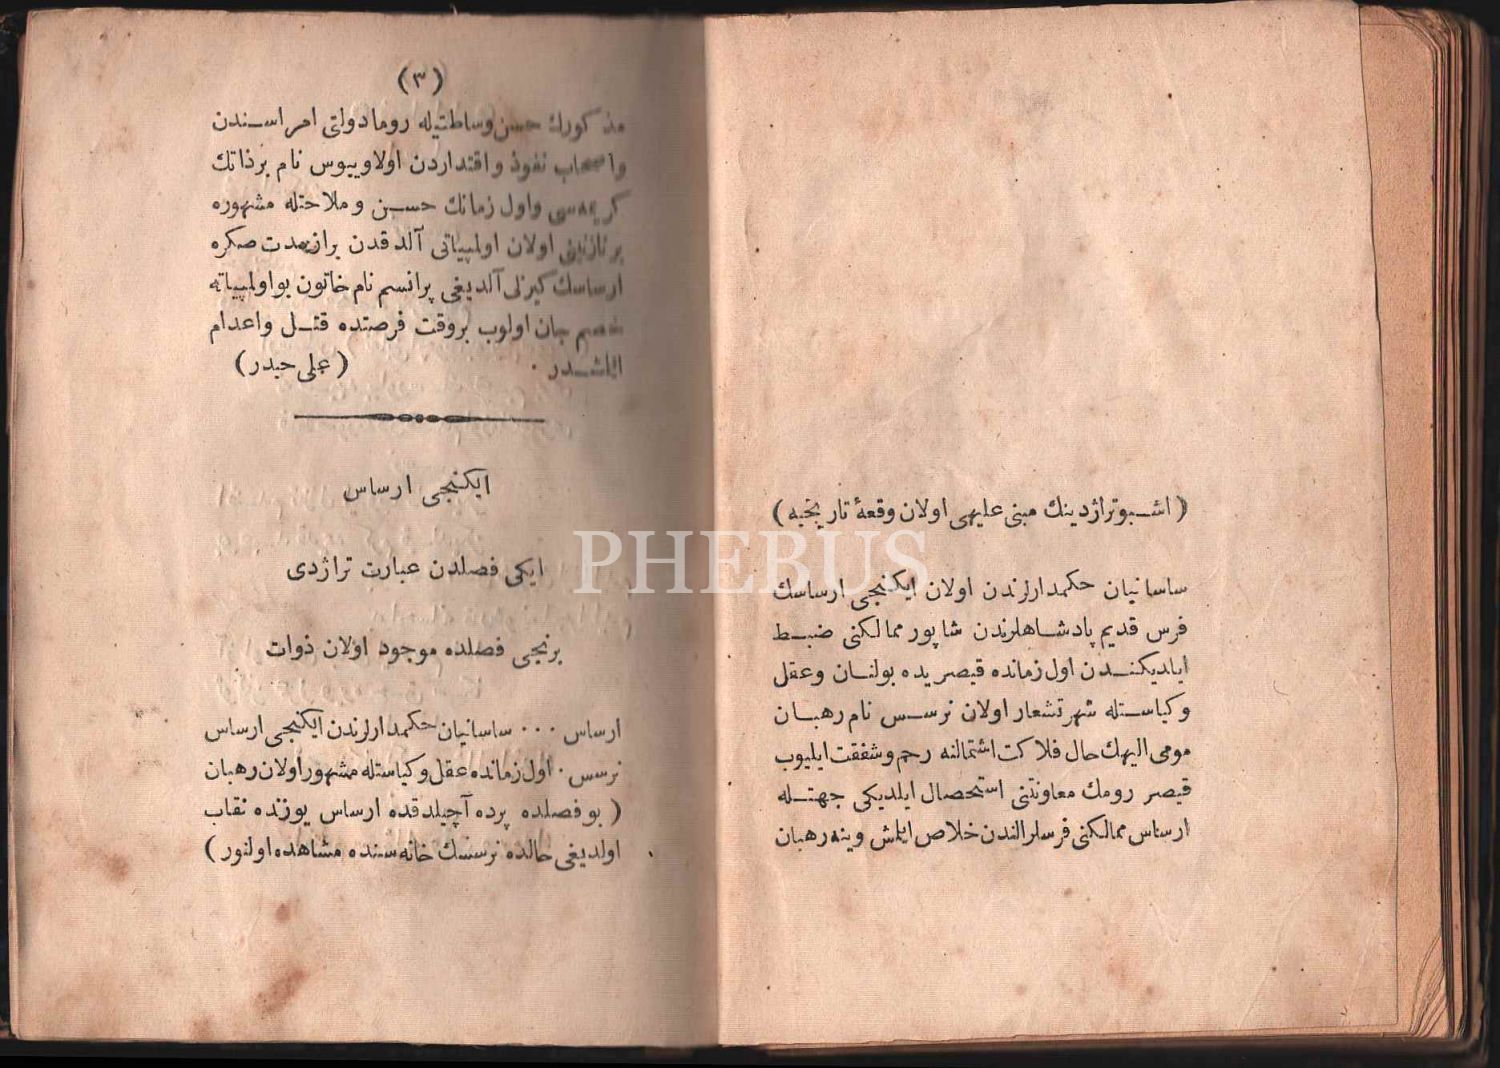 ( اشبو تراژدینك مبنی علیهی اولان وقعهٔ تاریخیه )
ساسانیان حكمدارلرندن اولان ایكنجی ارساسك
فرس قدیم پادشاهلرندن شاپور ممالكنی ضبط
ایلدیكندن اول زمانده قیصریده بولنان وعقل
وكیاستله شهرتشعار اولان نرسس نام رهبان
مومی الیهك حال فلاكت اشتمالنه رحم وشفقت ایلیوب
قیصر رومك معاونتنی استحصال ایلدیكی جهتله
ارساس ممالكنی فرسلر الندن خلاص ایلمش وینه رهبان
(٣)
مذكورك حسن وساطتیله روما دولتی امراسندن
واصحاب نفوذ واقتداردن اولاویبوس نام برذاتك
كریمه‌سی واول زمانك حسن وملاحتله مشهوره
برنازنینی اولان اولمپیاتی آلدقدن براز مدت صكره
ارساسك كیزلی آلدیغی پرانسم نام خاتون بو اولمپیاته
خصم جان اولوب بروقت فرصتده قتل واعدام
ایلمشدر . ( علی حیدر )
ایكنجی ارساس
ایكی فصلدن عبارت تراژدی
برنجی فصلده موجود اولان ذوات
ارساس ... ساسانیان حكمدارلرندن ایكنجی ارساس
نرسس . اول زمانده عقل وكیاستله مشهور اولان رهبان
( بو فصلده پرده آچیلدقده ارساس یوزنده نقاب
اولدیغی حالده نرسسك خانه سنده مشاهده اولنور )
PHEBUS